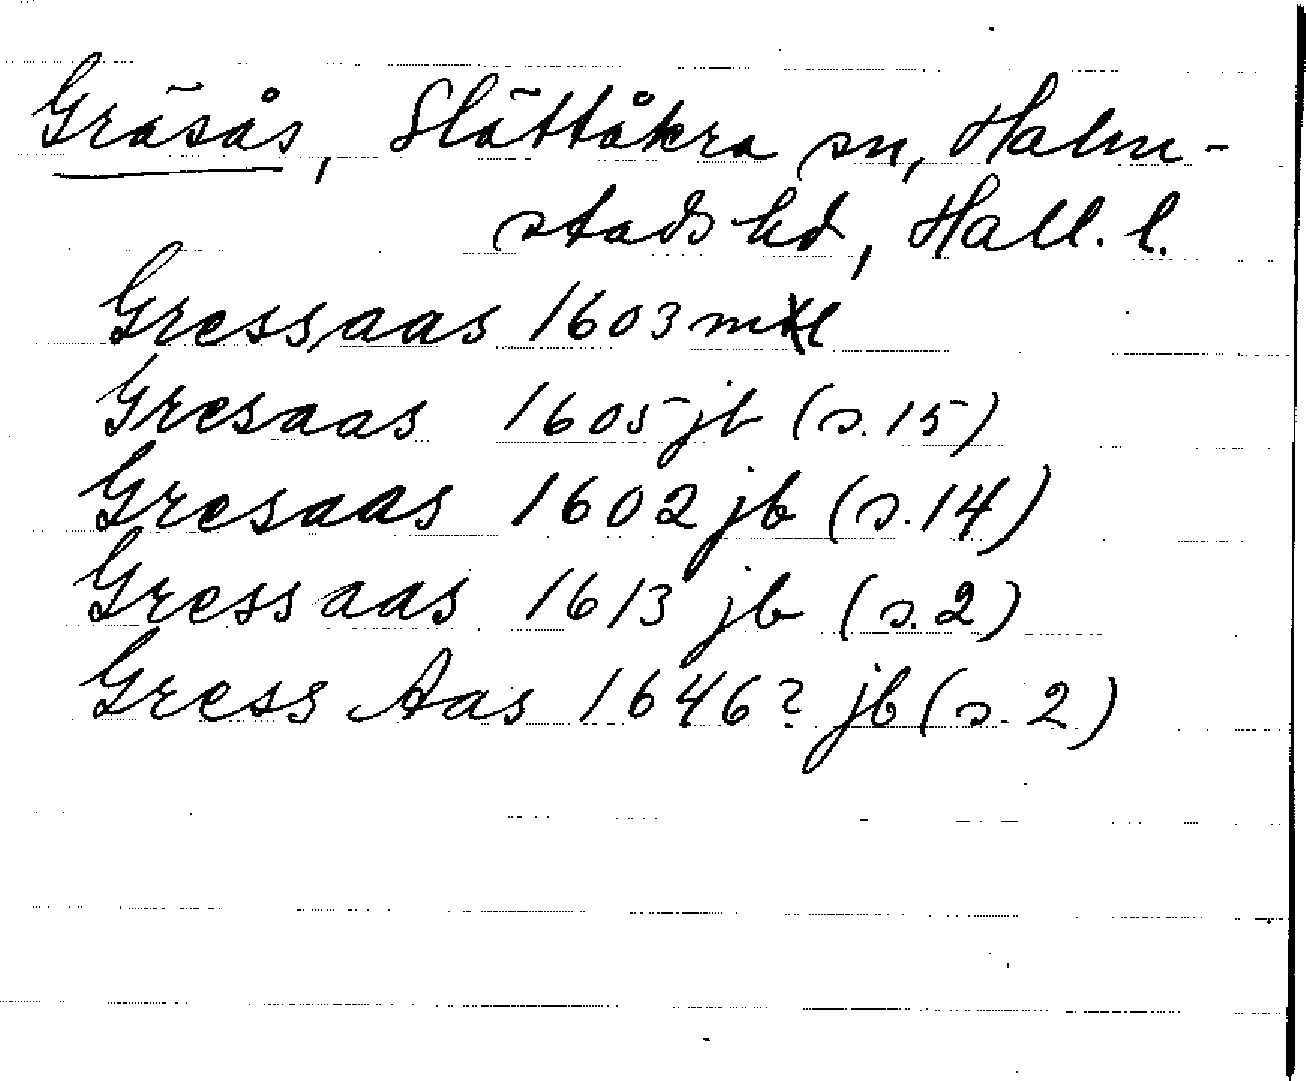 Gräsås, Slättåkra sn, Halm-
stads hd, Hall. l.
Gressaas 1603 mtl
Gresaas 1605 jb (s. 15)
Gresaas 1602 jb (s. 14)
Gressaas 1613 jb (s. 2)
Gress Aas 1646? jb (s. 2)